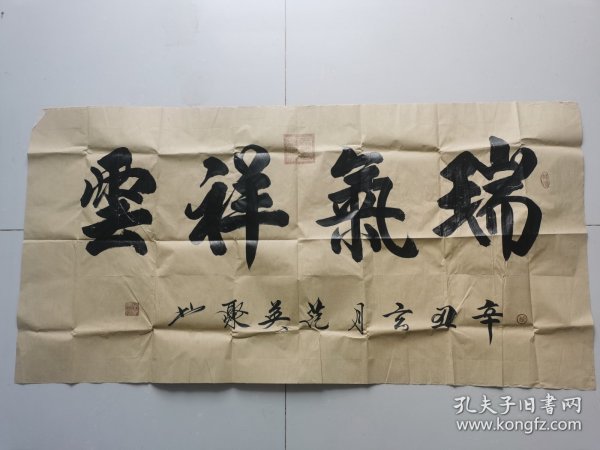 瑞氣祥雲
辛丑玄月范英聚书
孔夫子旧书网
www.kongfz.com